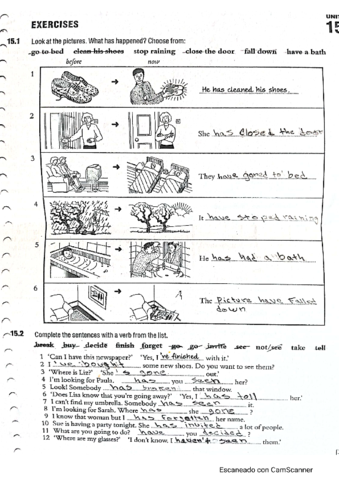 UNIT
15
EXERCISES
15.1 Look at the pictures. What has happened? Choose from:
go to bed clean his shoes stop raining close the door fall down have a bath
before now
1
He has cleaned his shoes.
2
She has closed the door
3
They have goned to bed
4
It have stoped raining
5
He has had a bath
6
The Picture have Falled
down
15.2 Complete the sentences with a verb from the list.
break buy decide finish forget go go invite see not/see take tell
1 'Can I have this newspaper?' 'Yes, I 've finished with it.'
2 I 've bought some new shoes. Do you want to see them?
3 'Where is Liz?' 'She 's gone out.'
4 I'm looking for Paula. has you seen her?
5 Look! Somebody has that window.
6 'Does Lisa know that you're going away?' 'Yes, I has tell her.'
7 I can't find my umbrella. Somebody has seen it.
8 I'm looking for Sarah. Where has she gone ?
9 I know that woman but I has her name.
10 Sue is having a party tonight. She has invited a lot of people.
11 What are you going to do? have you decided ?
12 'Where are my glasses?' 'I don't know. I haven't seen them.'
Escaneado con CamScanner